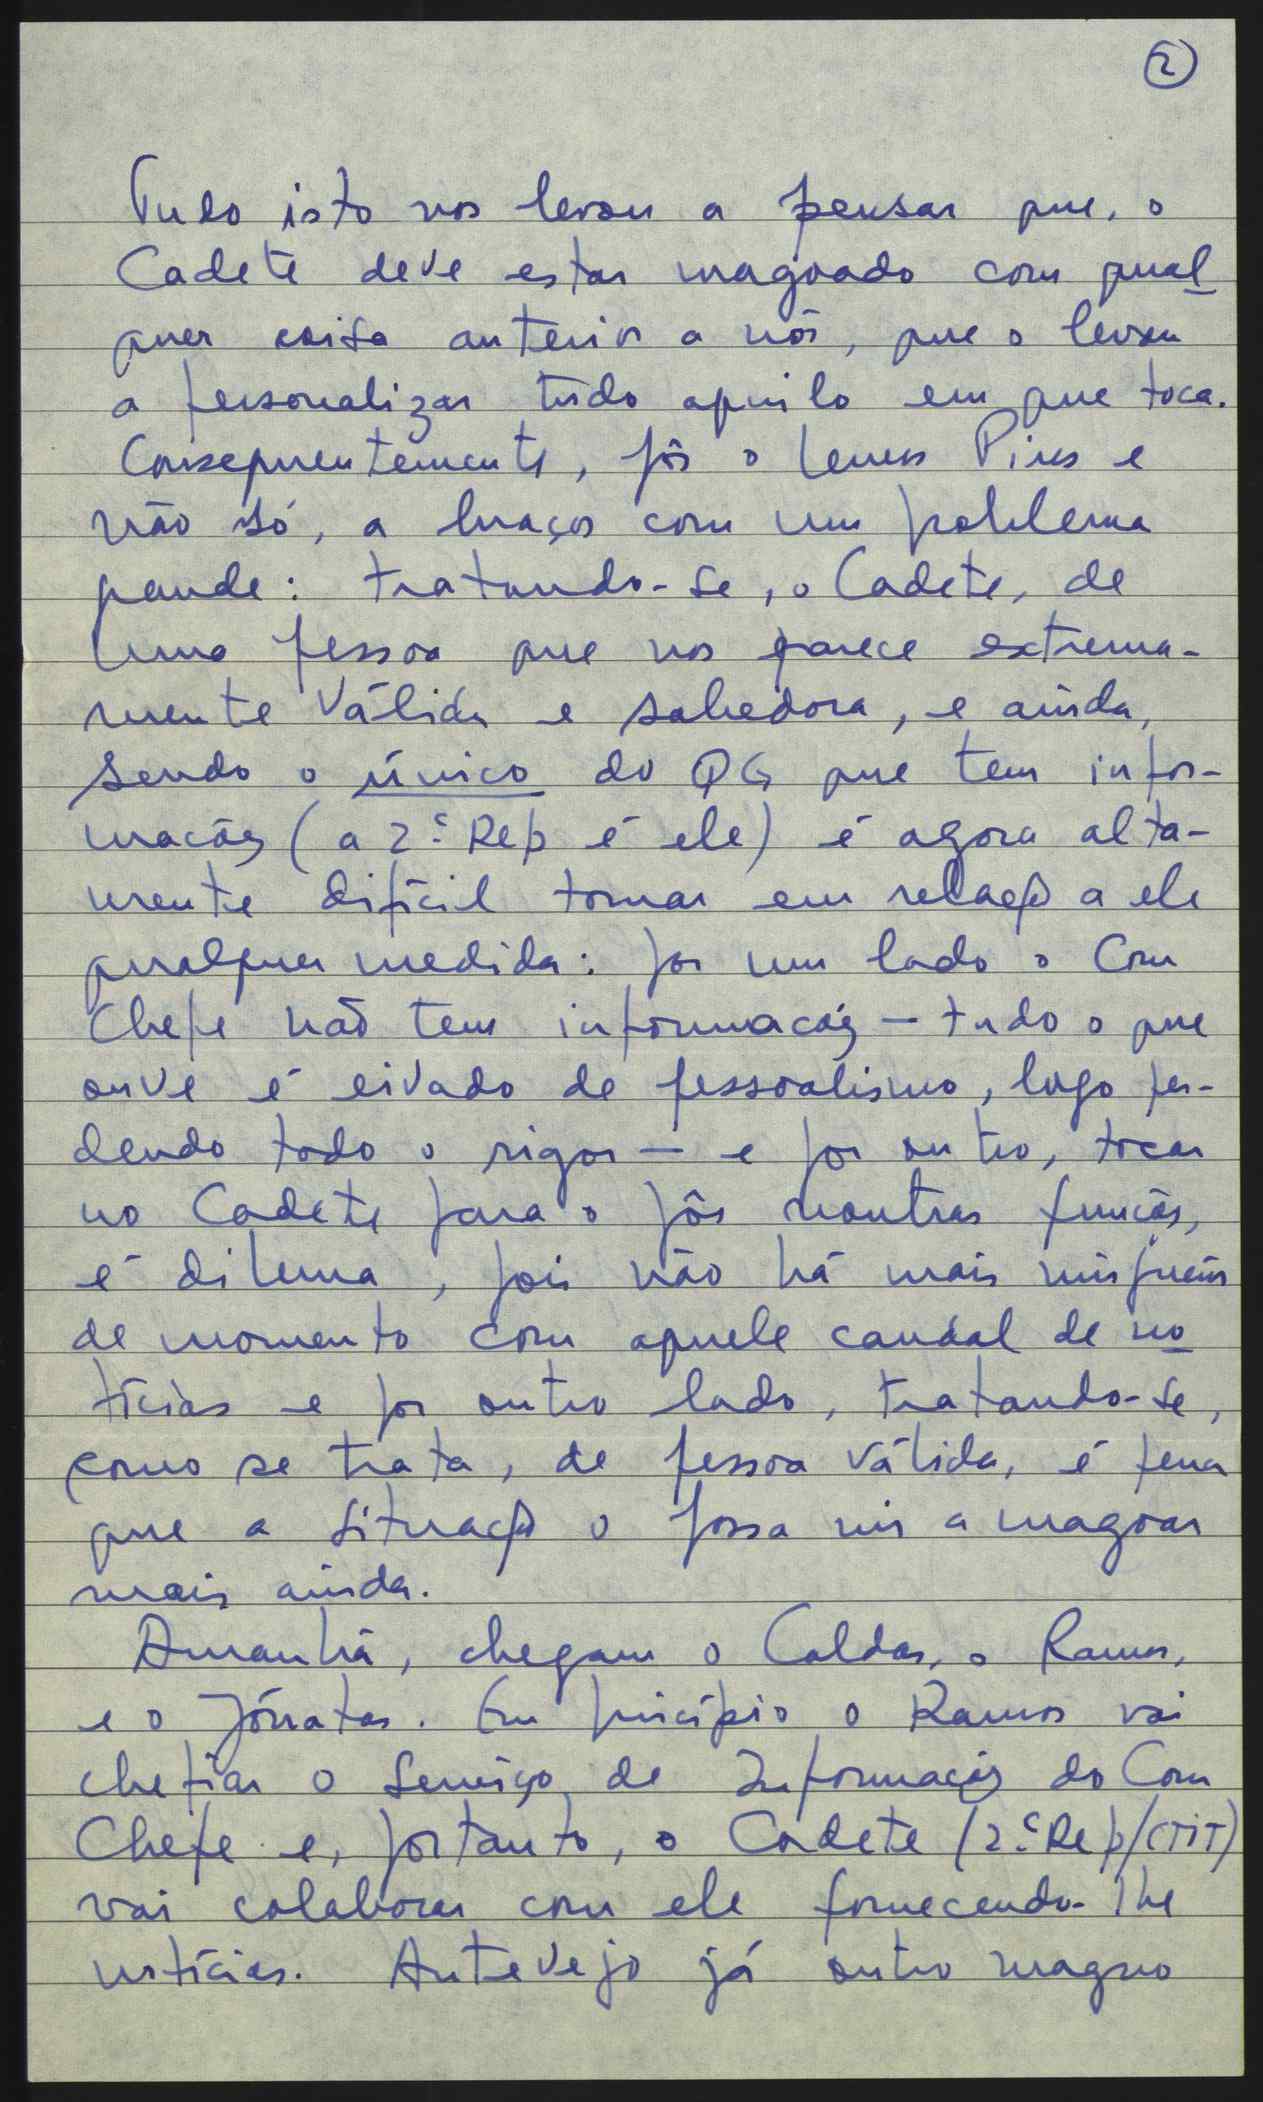 2
Tudo isto nos levou a pensar que, o
Cadete deve estar magoado com qual
quer coisa anterior a nós, que o levou
a personalizar tudo aquilo em que toca.
Consequentemente, pôs o Lemos Pires e
não só, a braços com um problema
grande: tratando-se, o Cadete, de
uma pessoa que nos parece extrema-
mente válida e sabedora, e ainda,
sendo o único do QG que tem infor-
mações (a 2ª Rep é ele) é agora alta-
mente difícil tomar em relação a ele
qualquer medida: por um lado o Com
Chefe não tem informações - tudo o que
ouve é eivado de pessoalismo, logo per-
dendo todo o rigor - e por outro, tocar
no Cadete para o pôr noutras funções,
é dilema, pois não há mais ninguém
de momento com aquele caudal de no
tícias e por outro lado, tratando-se,
como se trata, de pessoa válida, é pena
que a situação o possa vir a magoar
mais ainda.
Amanhã, chegam o Caldas, o Ramos,
e o Jónatas. Em princípio o Ramos vai
chefiar o Serviço de Informações do Com
Chefe e, portanto, o Cadete (2ª Rep/CTIT)
vai colaborar com ele fornecendo-lhe
notícias. Antevejo já outro magno